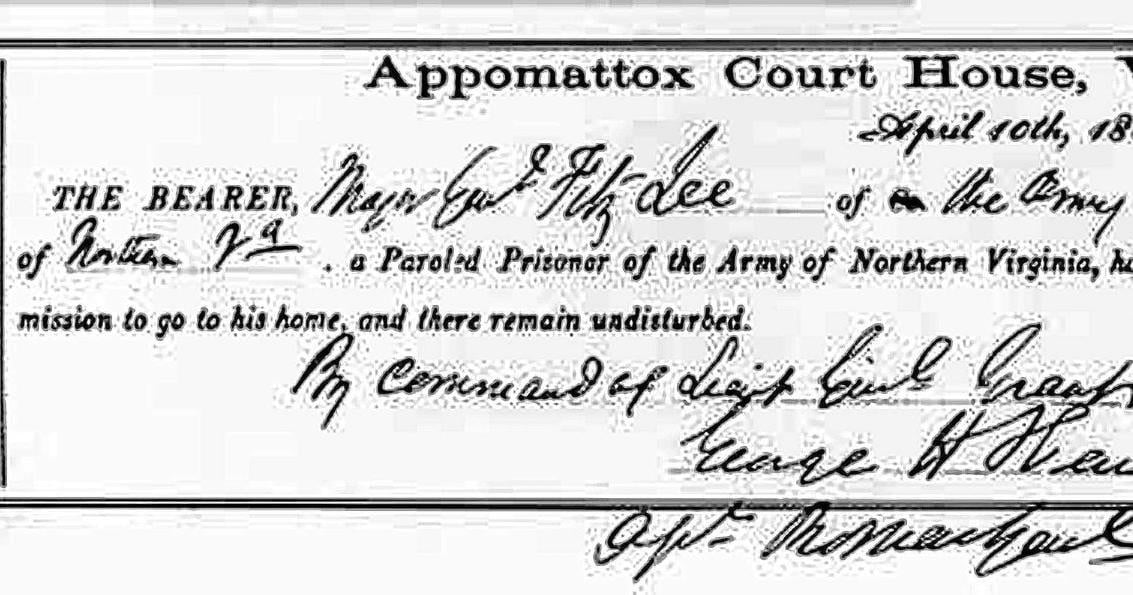 Appomattox Court House,
April 10th, 18
THE BEARER, Major Genl Fitz Lee of the Army
of Northern Va. a Paroled Prisoner of the Army of Northern Virginia, ha
mission to go to his home, and there remain undisturbed.
By Command of Lieut Genl Grant
George H